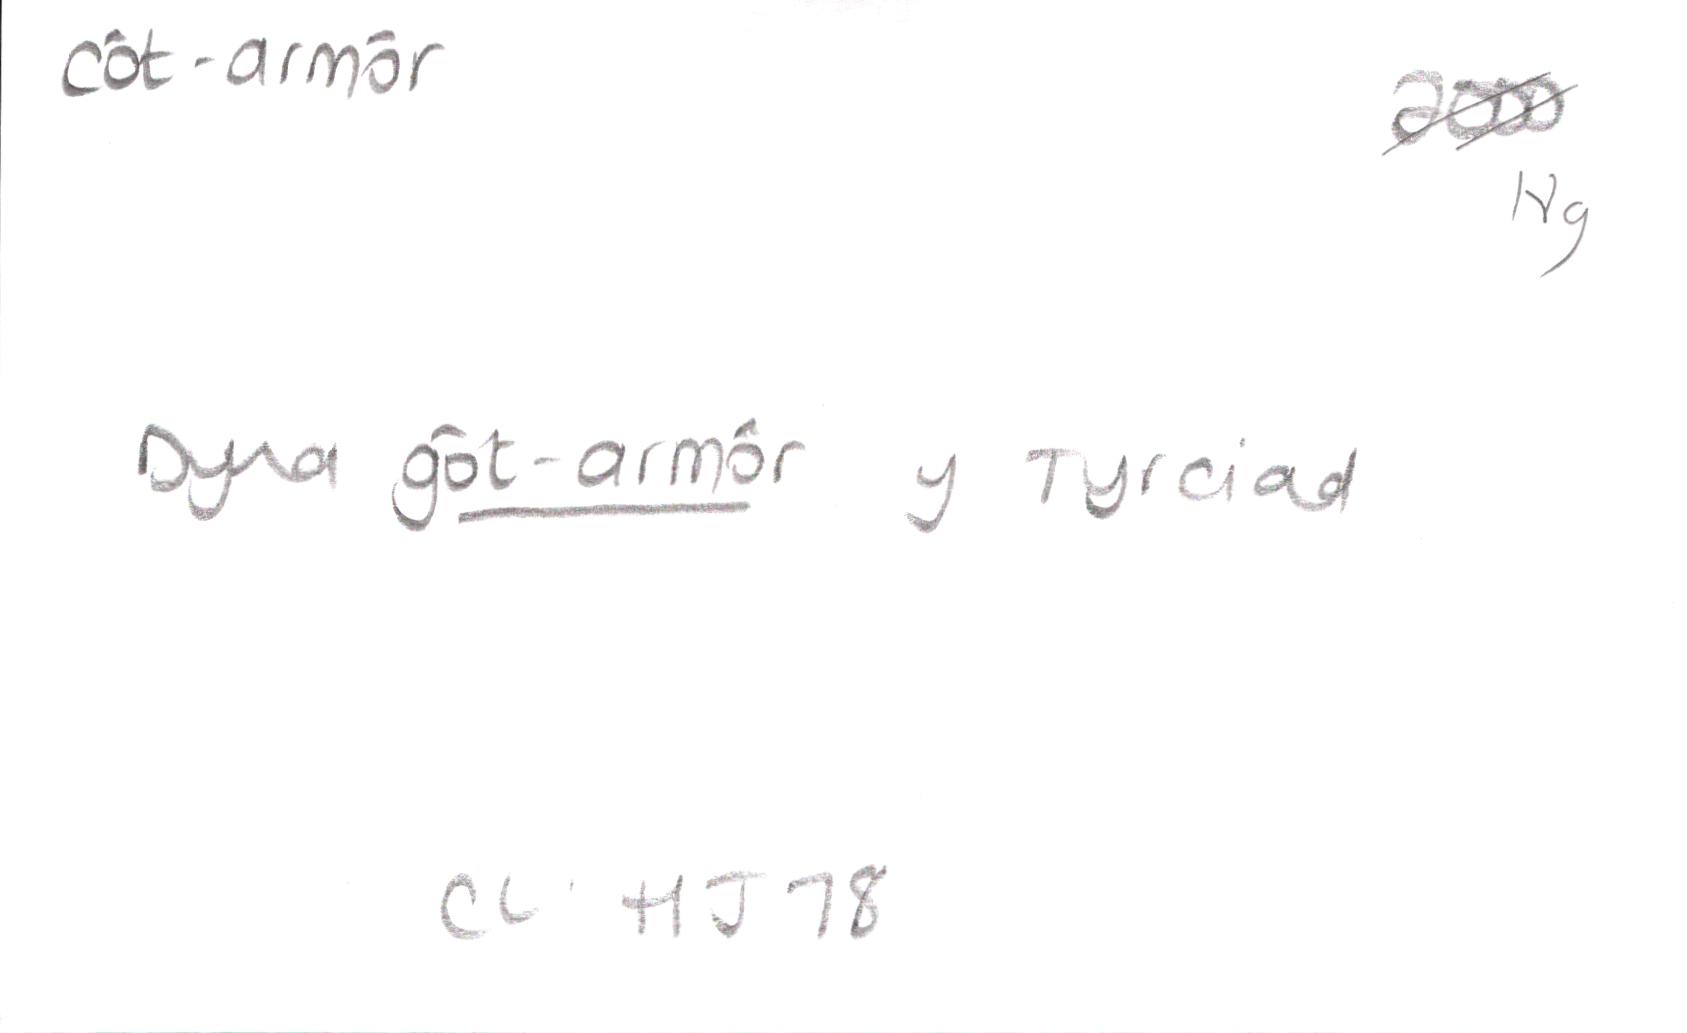 côt-armôr
2000
Ng
Dyna gôt-armôr y Tyrciad
CL. HJ 78